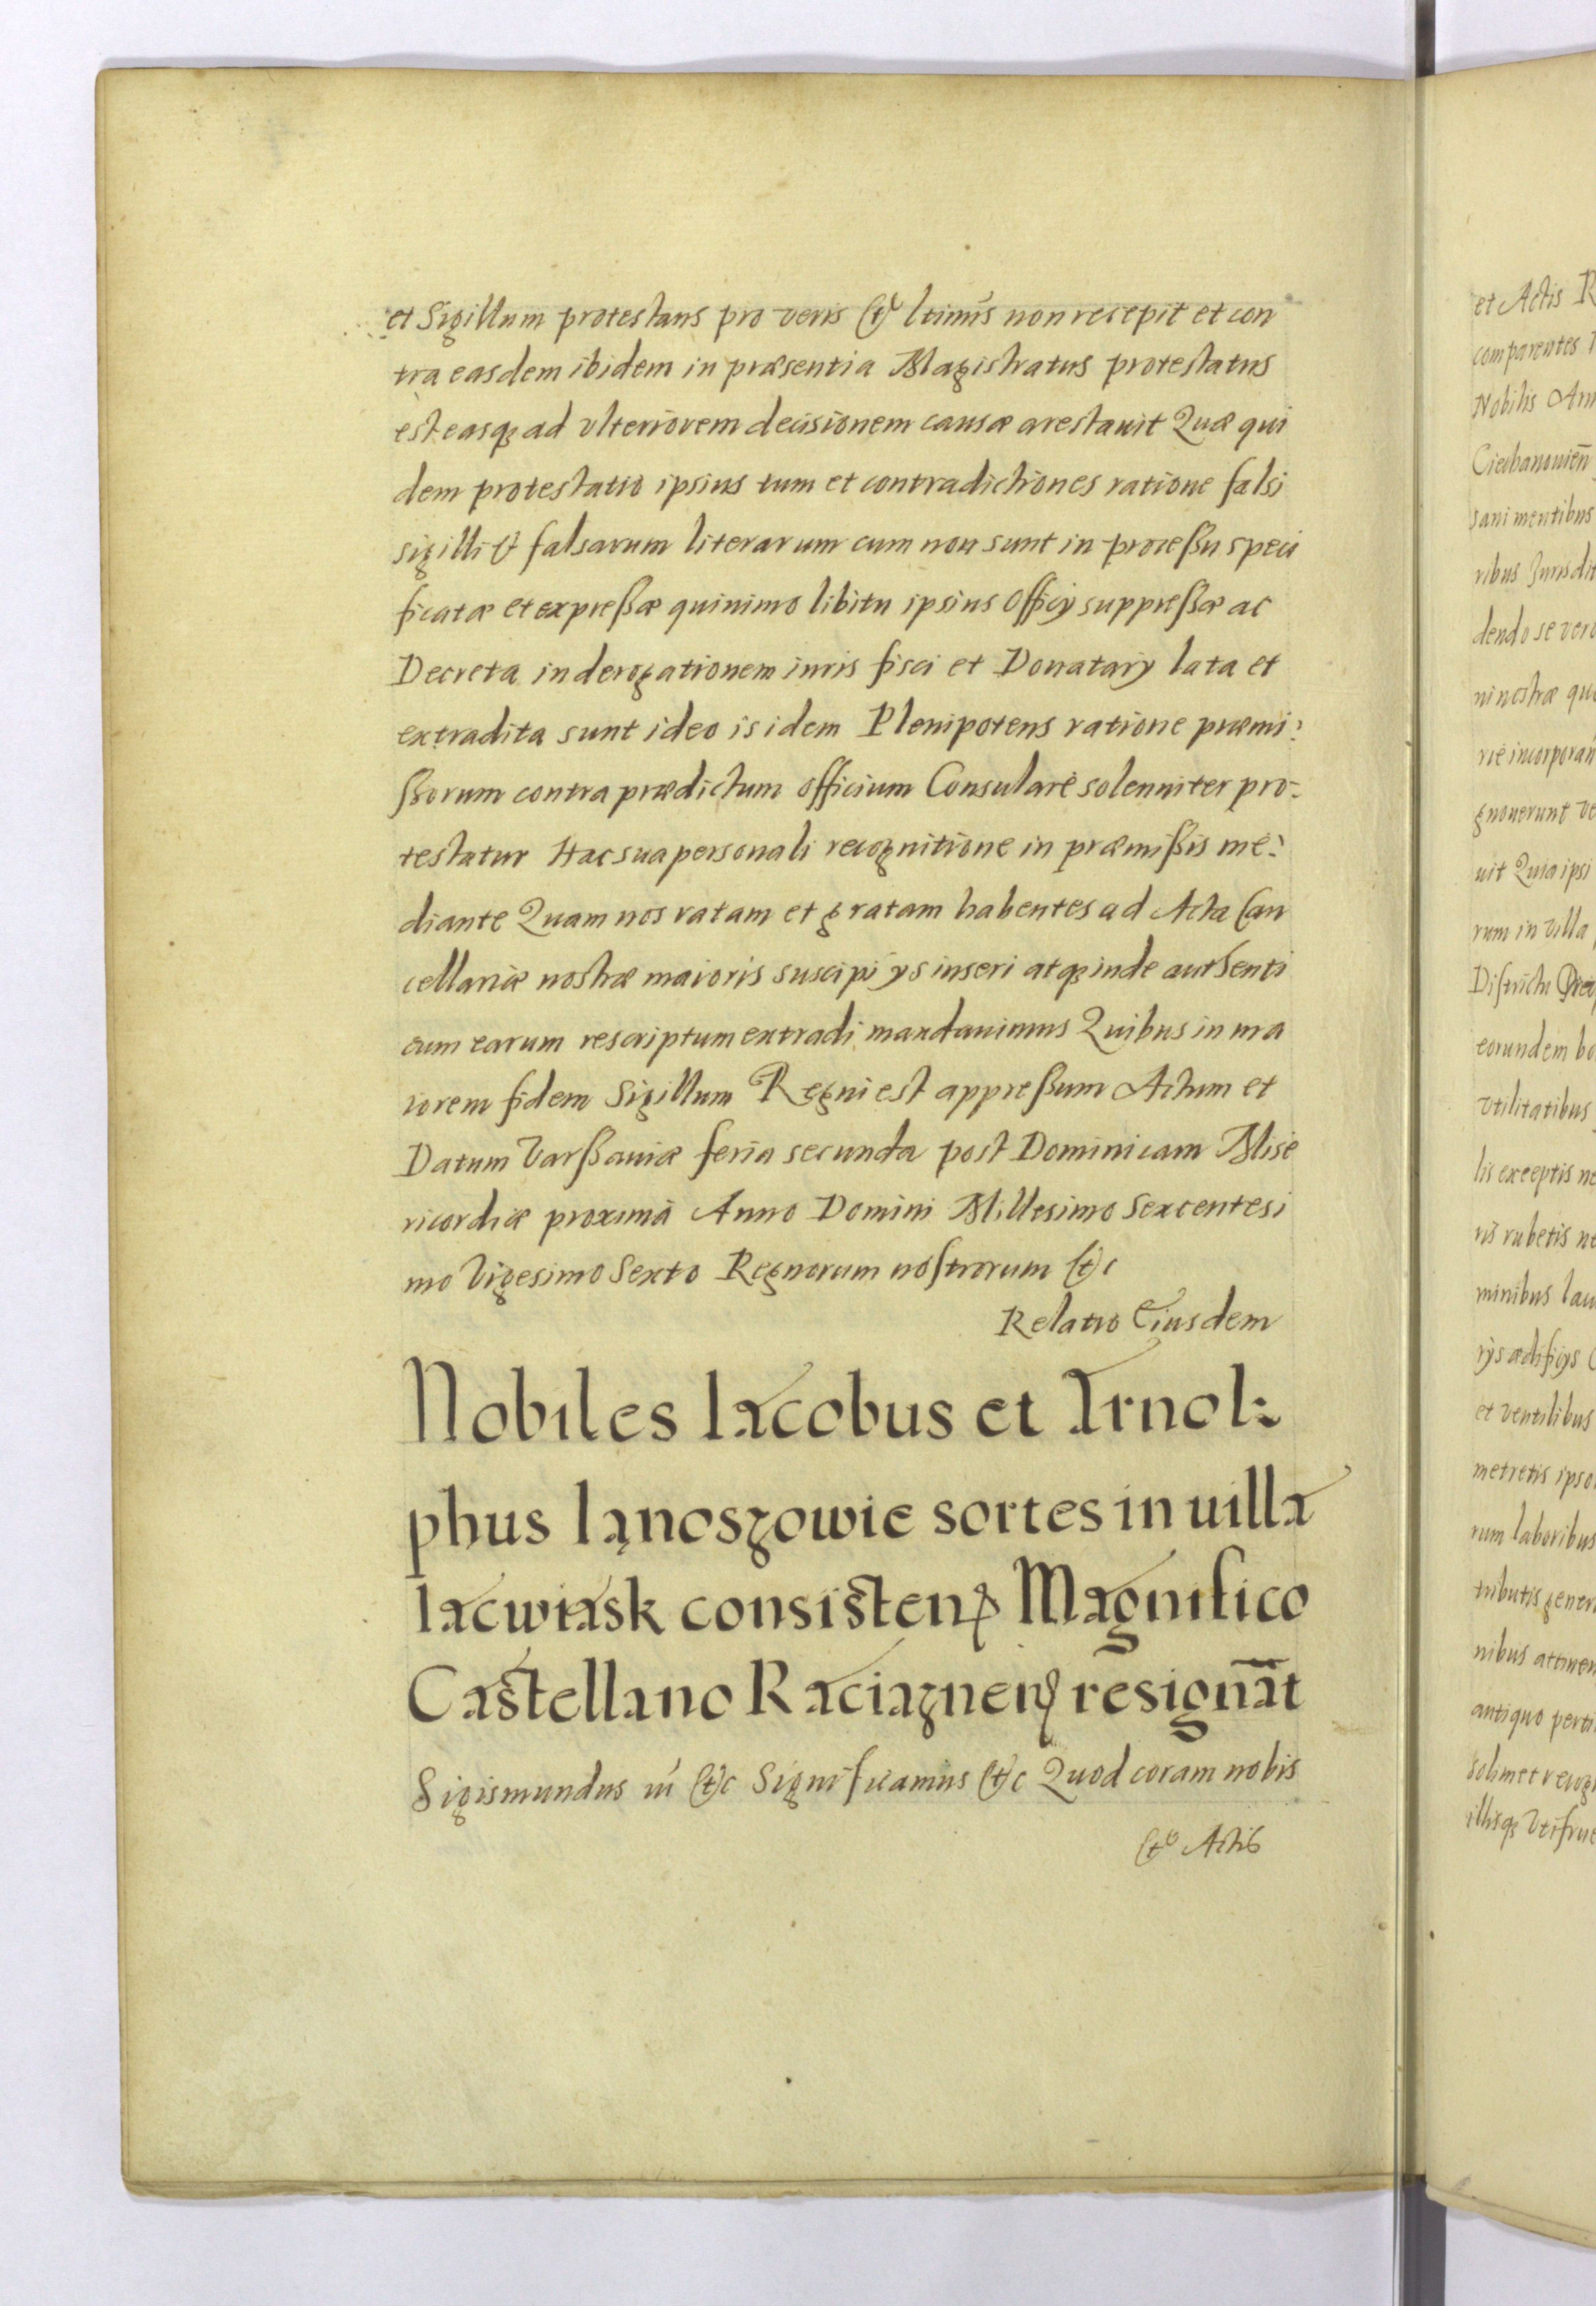 et Sigillum protestans pro veris et ltimis non recepit et con
tra easdem ibidem in præsentia Magistratus protestatus
est easq; ad vlteriorem decisionem causæ arestauit Quæ qui
dem protestatio ipsius tum et contradictiones ratione falsi
sigilli & falsarum literarum cum non sunt in proceßu speci
ficatæ et expreßæ quinimo libitu ipsius officÿ suppreßæ ac
Decreta in derogationem iuris fisci et Donatarÿ lata et
extradita sunt ideo is idem Plenipotens ratione præmi:
ßorum contra prædictum officium Consulare solenniter pro-
testatur Hac sua personali recognitione in præmißis me:
diante Quam nos ratam et gratam habentes ad Acta Can
cellariæ nostræ maioris suscipi ÿs inseri atq; inde authenti
cum earum rescriptum extradi mandauimus Quibus in ma
iorem fidem Sigillum Regni est appreßum Actum et
Datum Varßauiæ feria secunda post Dominicam Mise
ricordiæ proximâ Anno Domini Millesimo Sexcentesi
mo Vigesimo Sexto Regnorum nostrorum etc
Relatio Eiusdem
Nobiles Iacobus et Arnol:
phus Iąnoszowie sortes in uilla
Iacwiask consisten. Magnifico
Castellano Raciaznen. resignāt
Sigismundus iii etc Significamus etc Quod coram nobis
et Actis
et Actis R
comparentes
Nobilis Ann
Ciechanouien̄
sani mentibus
ribus Iurisdit
dendo se vero
ni nostræ qui
rie incorporan̄
gnouerunt ve
uit Quia ipsi
rum in villa
Districtu
eorundem bo
Vtilitatibus
lis exceptis ne
ris rubetis ne
minibus lacu
rÿs ædificÿs
et ventilibus
metretis ipso
rum laboribus
tributis gener
nibus attinen
antiquo perti
solimet recog
illisq; Vtifrue